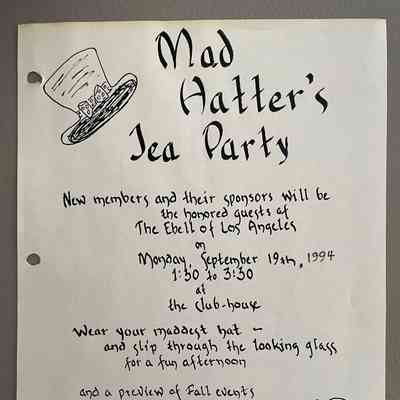 Mad
Hatter's
Tea Party
New members and their sponsors will be
the honored guests of
The Ebell of Los Angeles
on
Monday, September 19th, 1994
1:30 to 3:30
at
the club-house
Wear your maddest hat —
and slip through the looking glass
for a fun afternoon
and a preview of Fall events